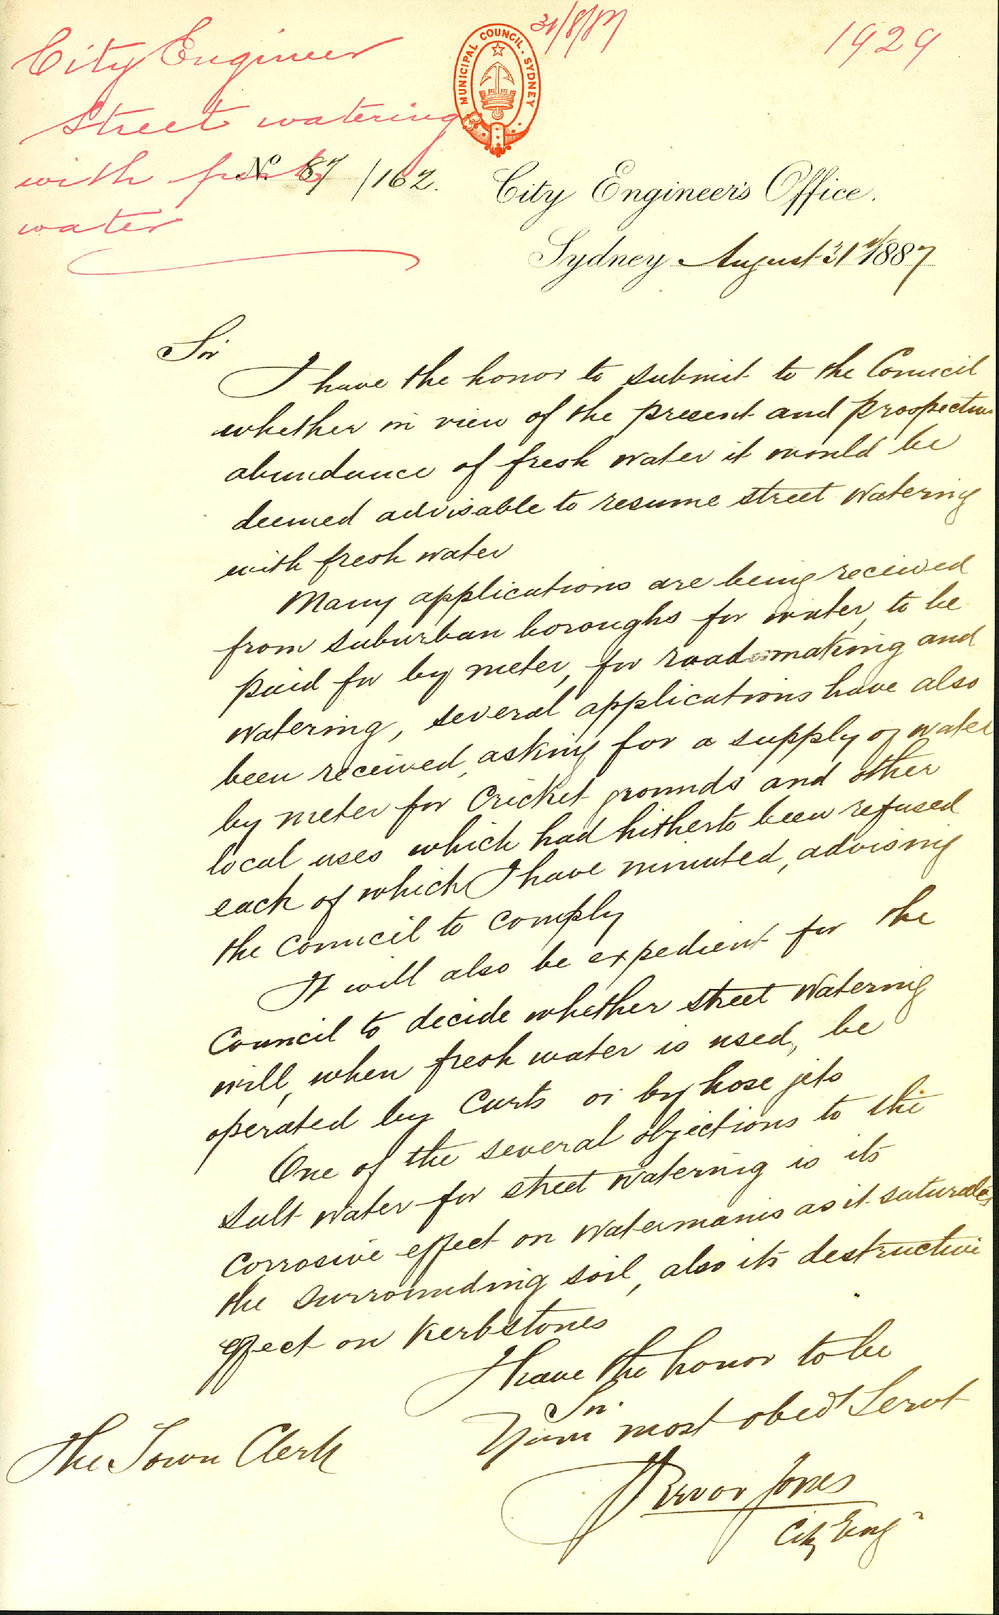 31/8/87
1929
City Engineer
Street watering
with fresh
water
MUNICIPAL COUNCIL · SYDNEY
No. 87/162.
City Engineer's Office.
Sydney August 31st 1887
Sir
I have the honor to submit to the Council
whether in view of the present and prospective
abundance of fresh water it would be
deemed advisable to resume street watering
with fresh water
Many applications are being received
from suburban boroughs for water, to be
paid for by meter, for road making and
watering, several applications have also
been received, asking for a supply of water
by meter for Cricket grounds and other
local uses which had hitherto been refused
each of which I have minuted, advising
the Council to comply
It will also be expedient for the
Council to decide whether street watering
will, when fresh water is used, be
operated by Carts or by hose jets
One of the several objections to the
salt water for street watering is its
corrosive effect on watermains as it saturates
the surrounding soil, also its destructive
effect on Kerbstones
I have the honor to be
Sir
Your most obedt Servt
Trevor Jones
City Engr
The Town Clerk